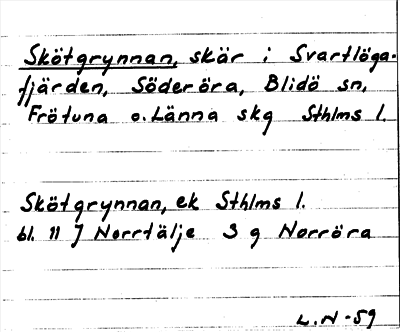 Skötgrynnan, skär i Svartlöga-
fjärden, Söderöra, Blidö sn,
Frötuna o. Länna skg Sthlms l.
Skötgrynnan, ek Sthlms l.
bl. 11 J Norrtälje 3 g Norröra
L.N-59